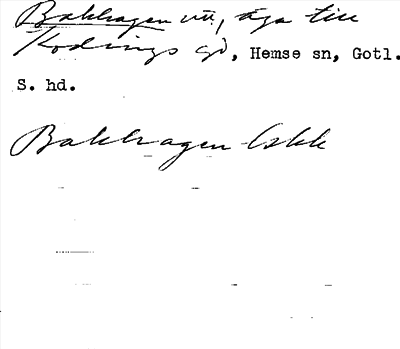 Bakhagen vid, äga till
Kodings gd, Hemse sn, Gotl.
S. hd.
Bakhagen